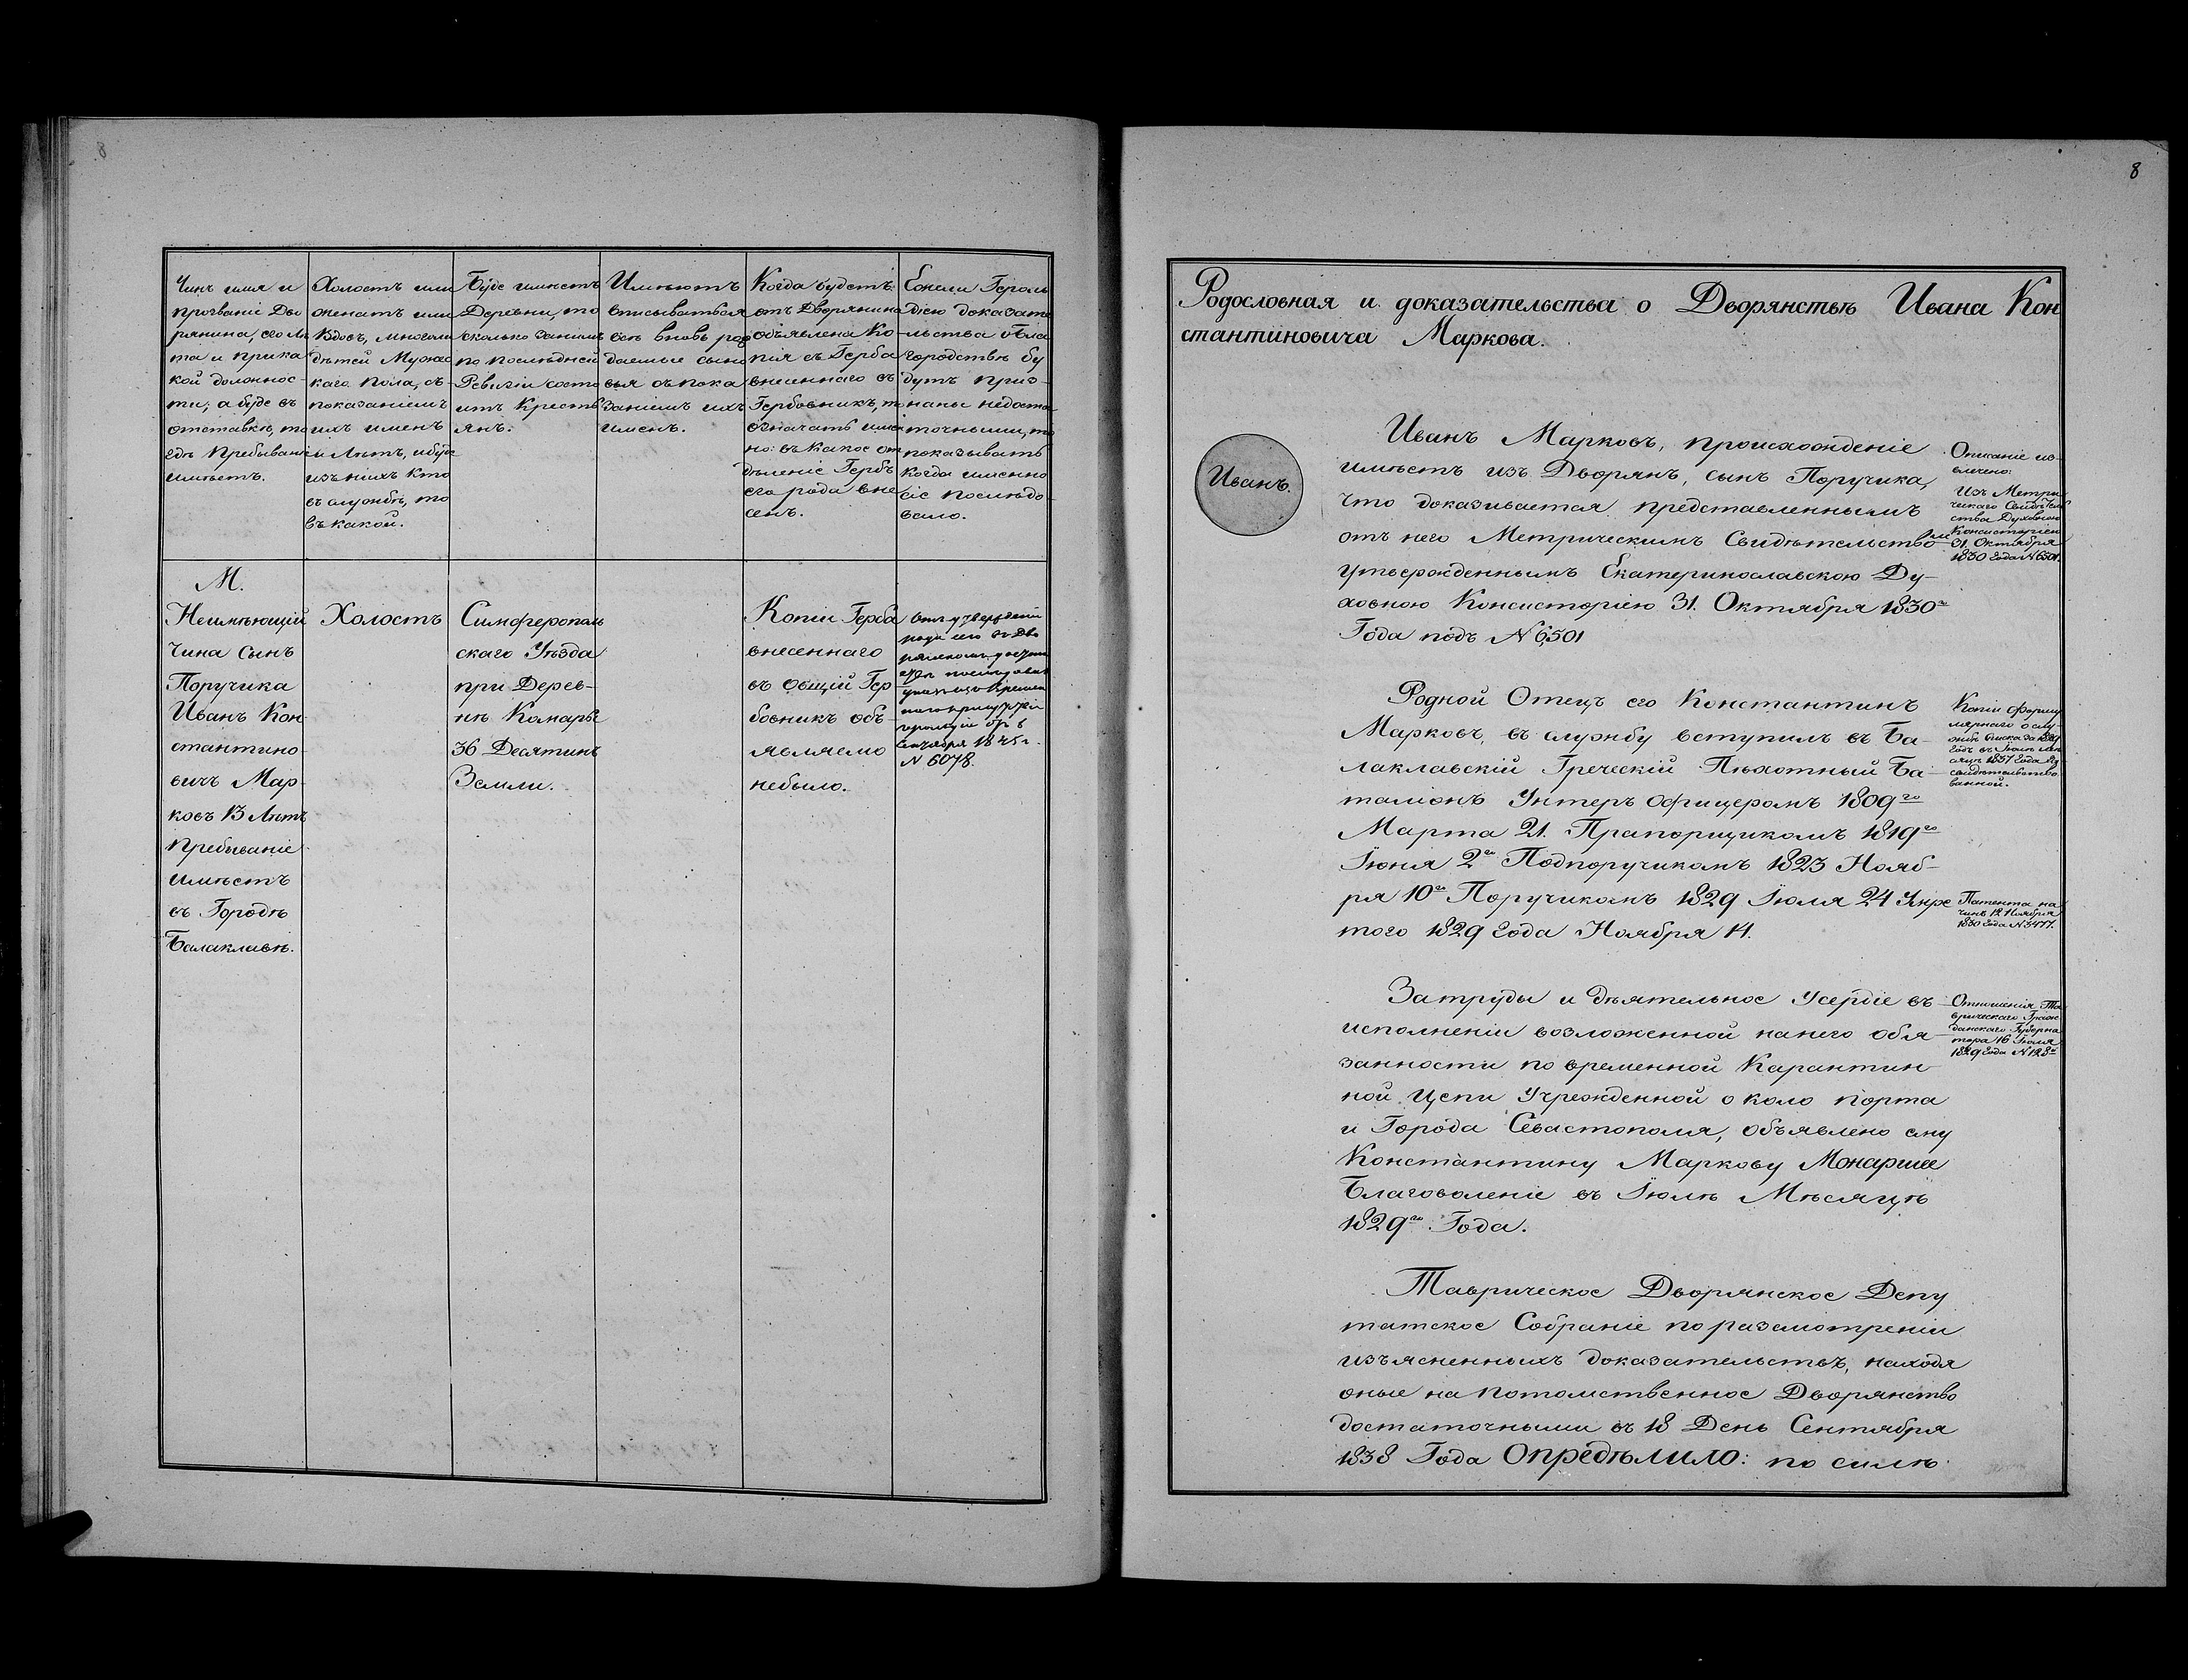 8
Чинъ имя и
прозваніе Дво
рянина, его лѣ
та и прика
кой должнос-
ти; а буде въ
отставкѣ, то
гдѣ пребываніе
имѣетъ.
Холостъ или
женатъ или
вдовъ, многоли
дѣтей мужес
каго пола, съ
показаніемъ
ихъ именъ
и лѣтъ, и буде
изъ нихъ кто
въ службѣ, то
въ какой.
Буде имѣетъ
Деревни, то
сколько за нимъ
по послѣдней
Ревизіи состо
итъ Крестъ
янъ.
Имѣютъ
вписываться
всѣ вновь рож
даемые сыно
вья съ пока
заніемъ ихъ
именъ.
Когда будетъ
отъ Дворянина
объявлена Ко-
пія съ Герба
внесеннаго въ
Гербовникъ, то
означать имен
но: въ какое от
дѣленіе Гербъ
его рода вне
сенъ.
Ежели Героль
діею доказате
льства о бла
городствѣ бу
дутъ приз-
наны недоста
точными, то
показывать
когда именно
сіе послѣдо-
вало.
М.
Неимѣющій
чина сынъ
Поручика
Иванъ Кон
стантино-
вичъ Мар-
ковъ 13 Лѣтъ
пребываніе
имѣетъ
въ Городѣ
Балаклавѣ.
Холостъ
Симферополь
скаго Уѣзда
при Дерев-
нѣ Камары
36 Десятинъ
Земли.
Копіи Герба
внесеннаго
въ Общій Гер
бовникъ объ-
являемо
небыло.
рода его въ Дво
1845 г.
N 6078.
8
Родословная и доказательства о Дворянствѣ Ивана Кон
стантиновича Маркова.
Иванъ.
Иванъ Марковъ, происхожденіе
имѣетъ изъ Дворянъ, сынъ Поручика,
что доказывается представленнымъ
отъ него Метрическимъ Свидѣтельство мъ
утвержденнымъ Екатеринославскою Ду-
ховною Консисторіею 31. Октября 1830го
Года подъ N 6501
Описаніе из-
влечено:
Изъ Метри
ческаго Свидѣтель
ства Духовною
Консисторіею
31. Октября
1830 года N 6501.
Родной Отецъ его Константинъ
Марковъ, въ службу вступилъ въ Ба-
лаклавскій Греческій Пѣхотный Ба
таліонъ Унтеръ Офицеромъ 1809го
Марта 21. Прапорщикомъ 1819го
Іюня 2го Подпоручикомъ 1823 Нояб-
ря 10го Поручикомъ 1829 Іюля 24 Умре
того 1829 года Ноября 14.
Копіи форму
лярнаго о слу
жбѣ списка за
годъ въ 1837 года
свидѣтельство
ванной.
Патента на
чинъ 12 Ноября
1830 года N 3477.
За труды и дѣятельное усердіе въ
исполненіи возложенной на него обя
занности по временной Карантин
ной Цепи учрежденной около порта
и Города Севастополя, объявлено ему
Константину Маркову Монаршее
Благоволеніе въ Іюлѣ Мѣсяцѣ
1829го Года.
Отношенія Та
врическаго Граж
данскаго Губерна
тора 16 Іюля
1829 года N 1282
Таврическое Дворянское Депу
татское Собраніе по разсмотреніи
изъясненныхъ доказательствъ, находя
оные на потомственное Дворянство
достаточными въ 18 День Сентября
1838 Года Опредѣлило: по силѣ